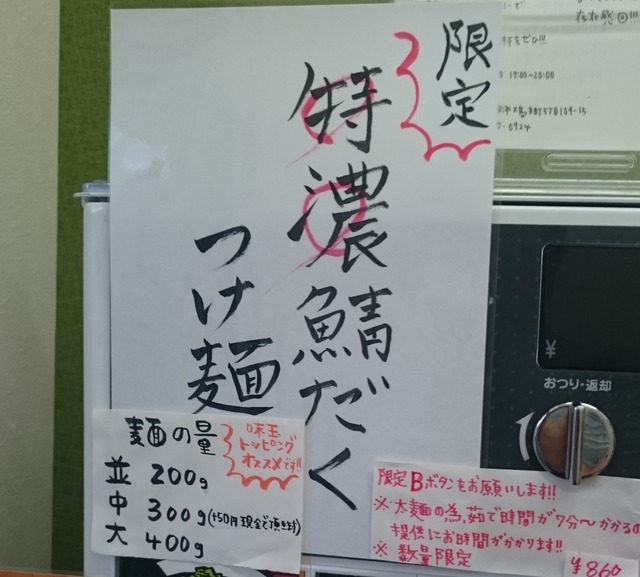 限定
特濃鯖だく
つけ麺
麺の量
味玉
トッピング
オススメです!!
並 200g
中 300g(+50円現金で頂きます)
大 400g
限定Bボタンをお願いします!!
※太麺の為、茹で時間が7分〜かかるの
提供にお時間がかかります!!
※数量限定
¥860
¥
おつり・返却
存在感
19:00~20:00
7-0924